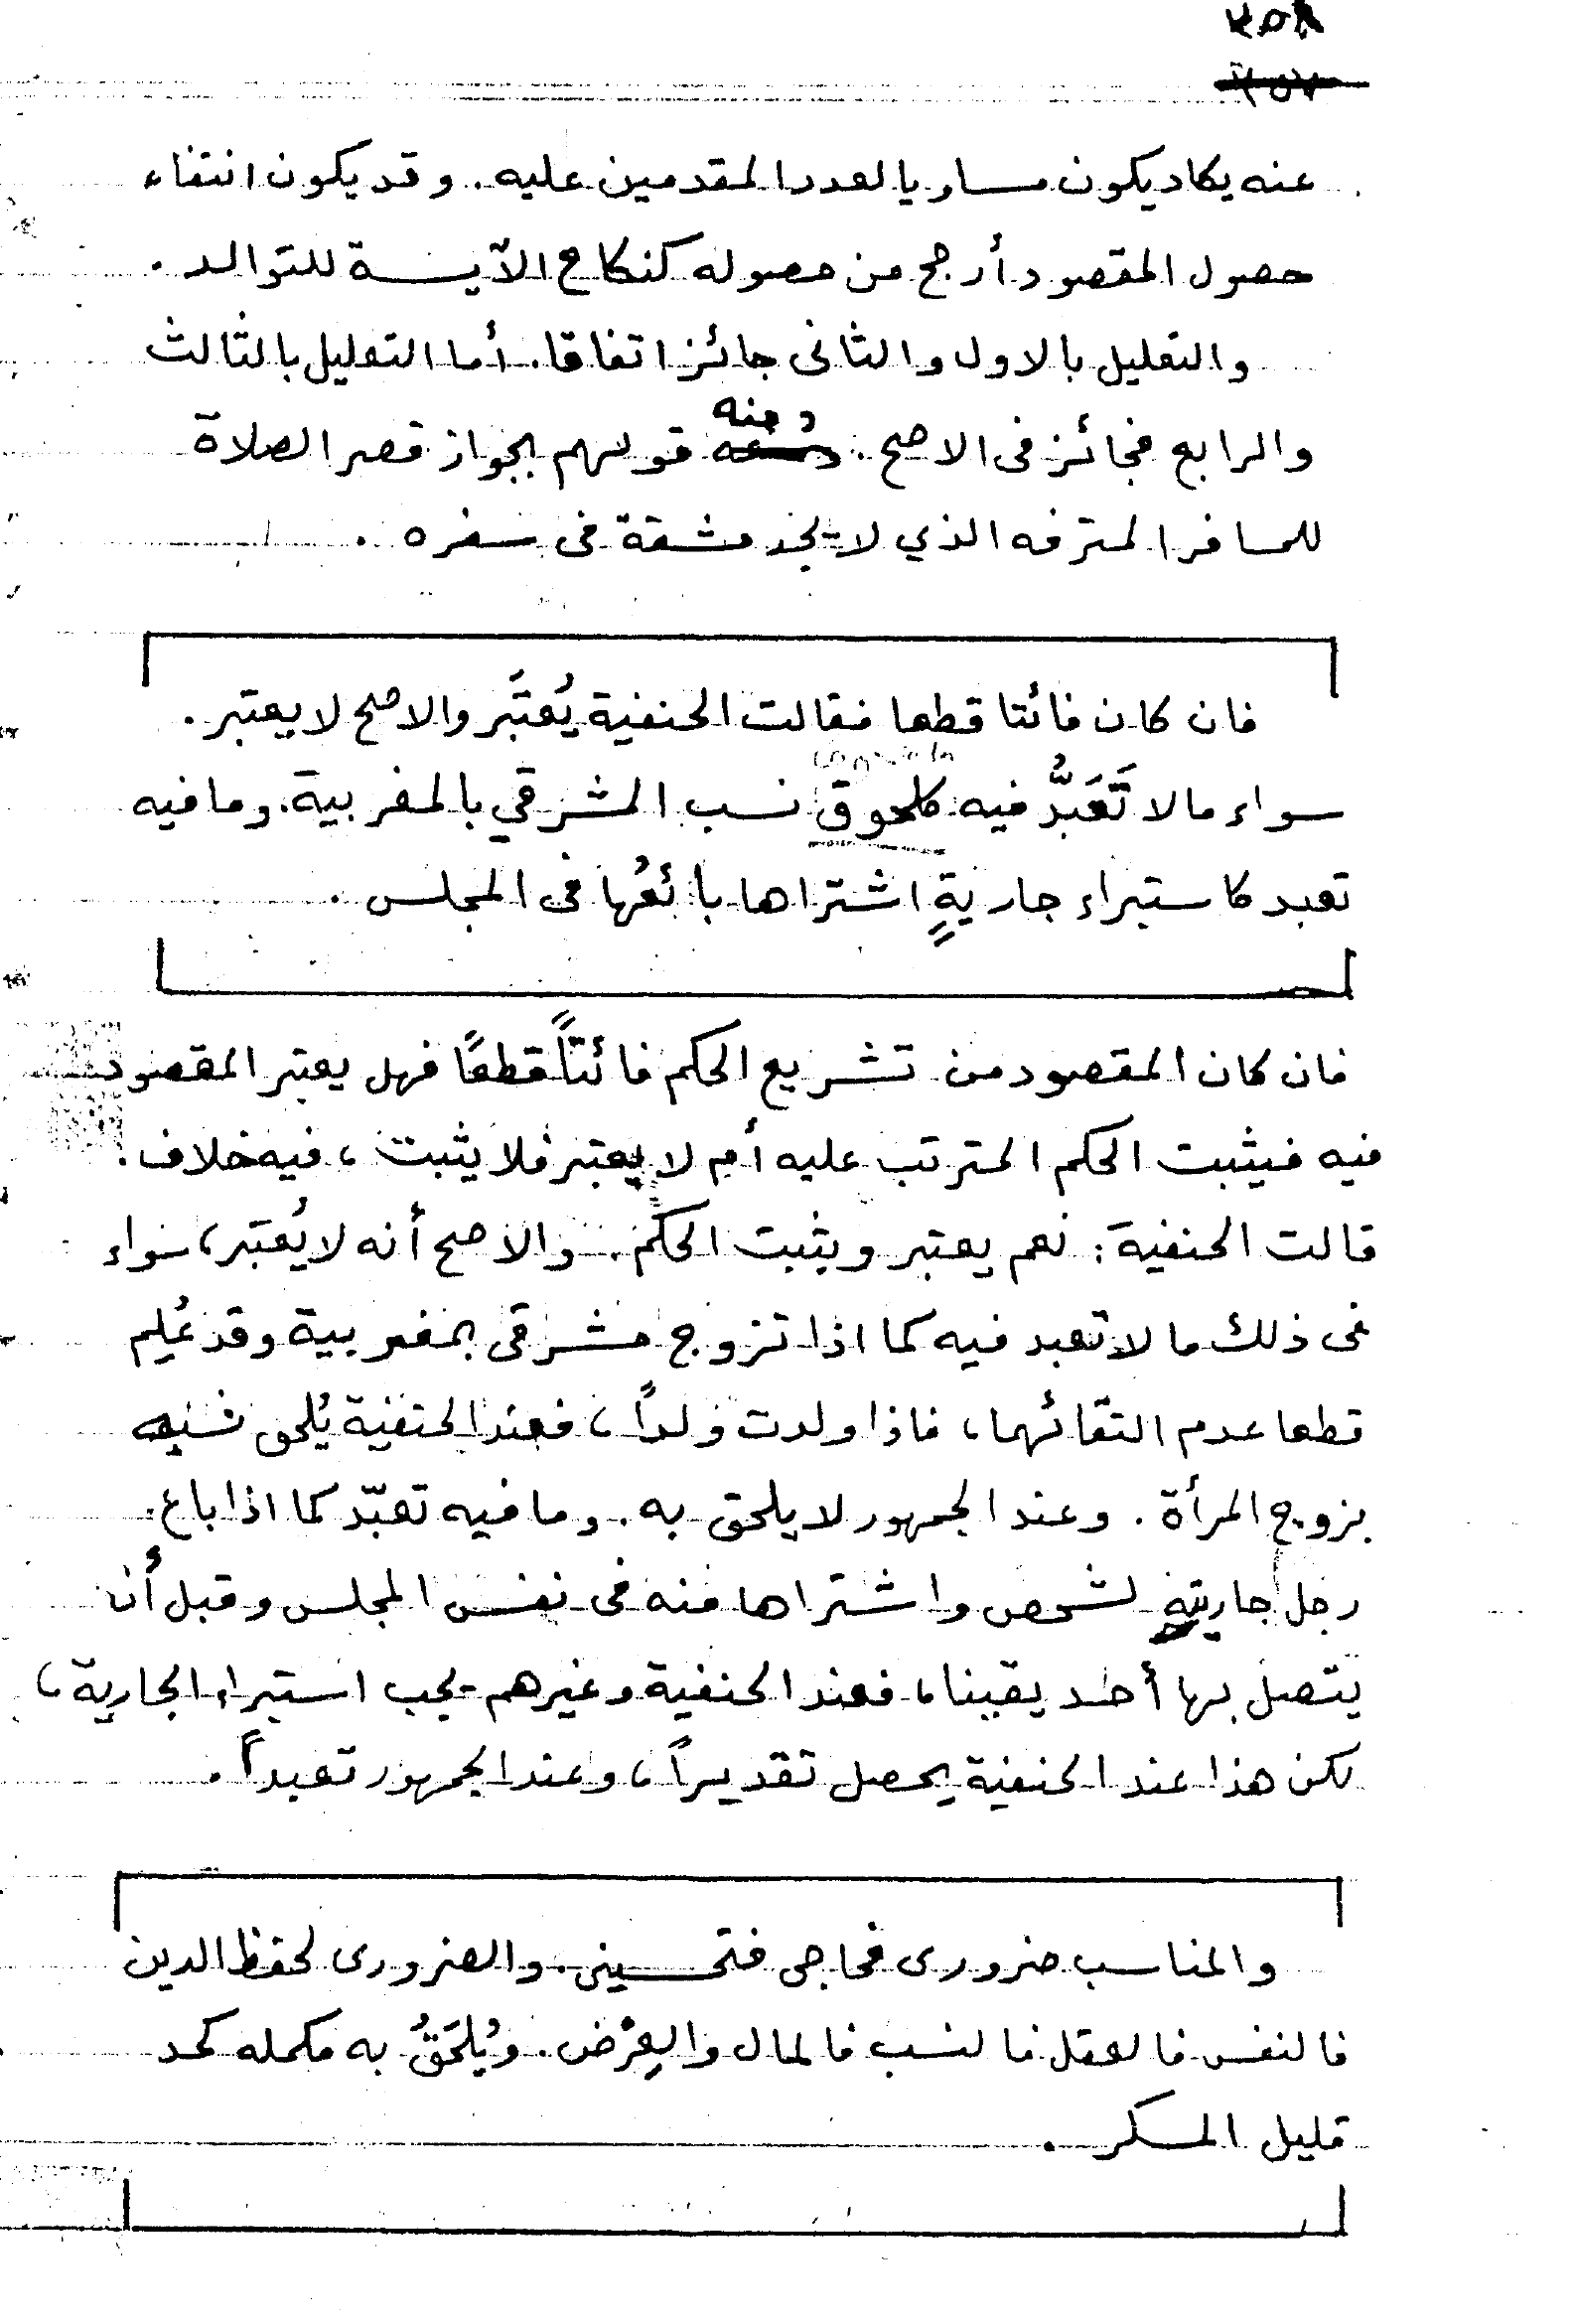 ٢٥٨
عنه يكاد يكون مساويا لعدد المقدمين عليه. وقد يكون انتفاء
حصول المقصود أرجح من حصوله كنكاح الآيسة للتوالد.
والتعليل بالاول والثانى جائز اتفاقا. أما التعليل بالثالث
والرابع فجائز فى الاصح. ومنه قولهم بجواز قصر الصلاة
للمسافر المترفه الذي لا يجد مشقة فى سفره.
فان كان فائتا قطعا فقالت الحنفية يُعتَبَر والاصح لا يعتبر.
سواء ما لا تَعَبُّدَ فيه كلحوق نسب المشرقي بالمغربية. وما فيه
تعبد كاستبراء جاريةٍ اشتراها بائعُها فى المجلس.
فان كان المقصود من تشريع الحكم فائتاً قطعًا فهل يعتبر المقصود
فيه فيثبت الحكم المترتب عليه أم لا يعتبر فلا يثبت، فيه خلاف.
قالت الحنفية: نعم يعتبر ويثبت الحكم. والاصح أنه لا يُعتبر، سواء
فى ذلك ما لا تعبد فيه كما اذا تزوج مشرقى بمغربية وقد عُلِم
قطعا عدم التقائهما، فاذا ولدت ولداً، فعند الحنفية يُلحق نسبه
بزوج المرأة. وعند الجمهور لا يلحق به. وما فيه تعبّد كما اذا باع
رجل جاريته لشخص واشتراها منه فى نفس المجلس وقبل أن
يتصل بها أحد يقينا، فعند الحنفية وغيرهم يجب استبراء الجارية،
لكن هذا عند الحنفية يحصل تقديراً، وعند الجمهور تعبداً.
والمناسب ضرورى فحاجى فتحسينى. والضرورى لحفظ الدين
فالنفس فالعقل فالنسب فالمال والعِرْض. ويُلحَقُ به مكمله كحد
قليل المسكر.